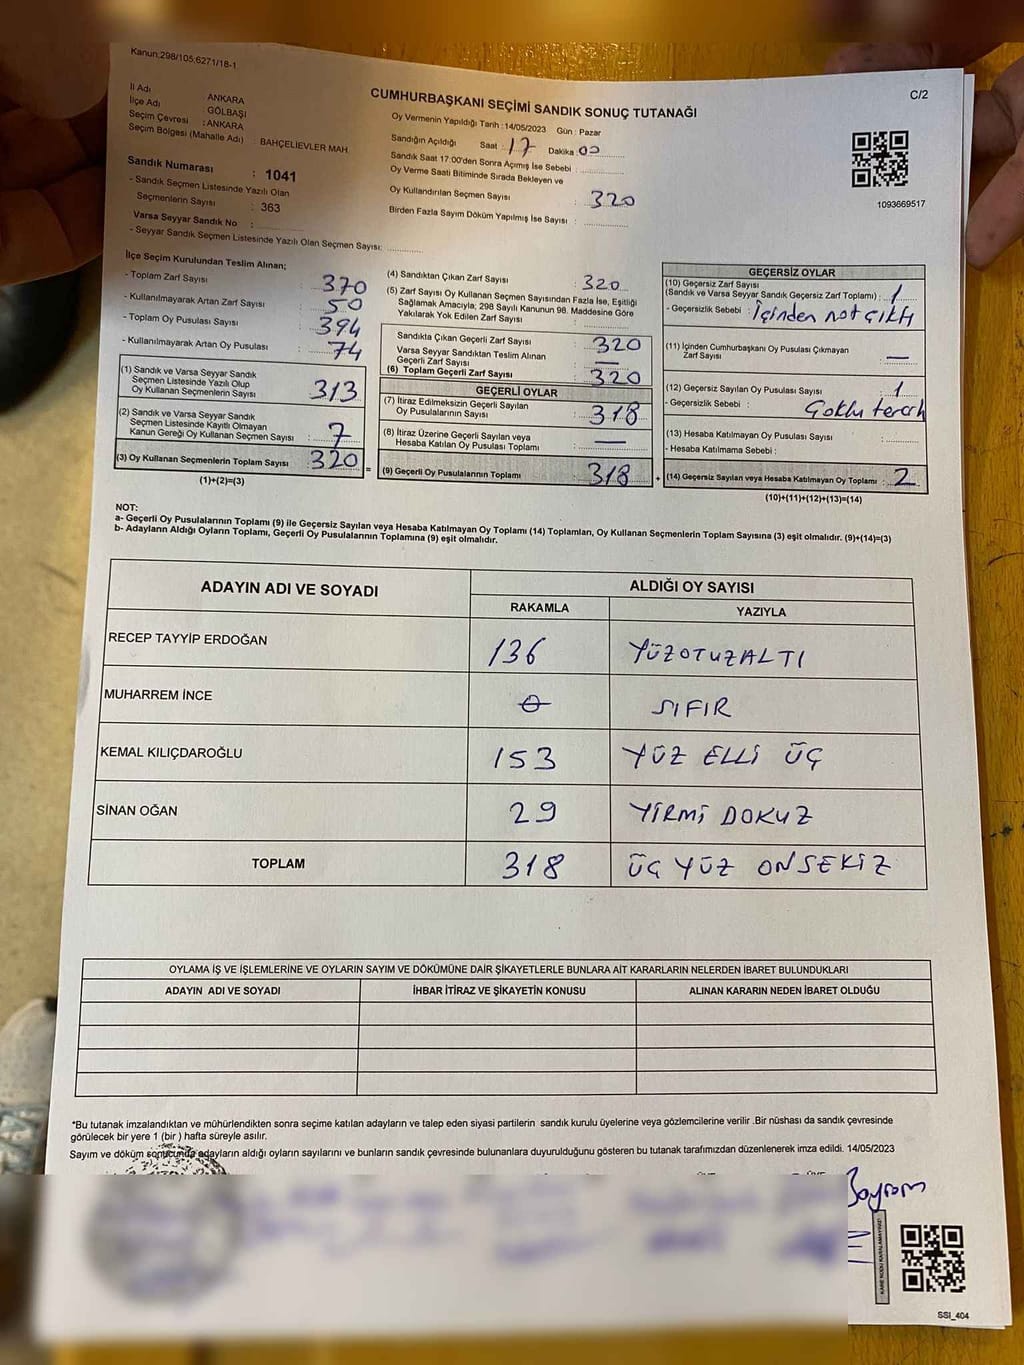 Kanun:298/105;6271/18-1
C/2
CUMHURBAŞKANI SEÇİMİ SANDIK SONUÇ TUTANAĞI
İl Adı : ANKARA
İlçe Adı : GÖLBAŞI
Seçim Çevresi : ANKARA
Seçim Bölgesi (Mahalle Adı) : BAHÇELİEVLER MAH.
Sandık Numarası : 1041
- Sandık Seçmen Listesinde Yazılı Olan
Seçmenlerin Sayısı : 363
Varsa Seyyar Sandık No :
- Seyyar Sandık Seçmen Listesinde Yazılı Olan Seçmen Sayısı:
Oy Vermenin Yapıldığı Tarih :14/05/2023 Gün : Pazar
Sandığın Açıldığı Saat : 17 Dakika 00
Sandık Saat 17:00'den Sonra Açımış İse Sebebi :
Oy Verme Saati Bitiminde Sırada Bekleyen ve
Oy Kullandırılan Seçmen Sayısı : 320
Birden Fazla Sayım Döküm Yapılmış İse Sayısı :
1093669517
İlçe Seçim Kurulundan Teslim Alınan;
- Toplam Zarf Sayısı : 370
- Kullanılmayarak Artan Zarf Sayısı : 50
- Toplam Oy Pusulası Sayısı : 394
- Kullanılmayarak Artan Oy Pusulası : 74
(1) Sandık ve Varsa Seyyar Sandık
Seçmen Listesinde Yazılı Olup
Oy Kullanan Seçmenlerin Sayısı : 313
(2) Sandık ve Varsa Seyyar Sandık
Seçmen Listesinde Kayıtlı Olmayan
Kanun Gereği Oy Kullanan Seçmen Sayısı : 7
(3) Oy Kullanan Seçmenlerin Toplam Sayısı : 320
(1)+(2)=(3)
=
(4) Sandıktan Çıkan Zarf Sayısı : 320
(5) Zarf Sayısı Oy Kullanan Seçmen Sayısından Fazla İse, Eşitliği
Sağlamak Amacıyla; 298 Sayılı Kanunun 98. Maddesine Göre
Yakılarak Yok Edilen Zarf Sayısı :
Sandıkta Çıkan Geçerli Zarf Sayısı : 320
Varsa Seyyar Sandıktan Teslim Alınan
Geçerli Zarf Sayısı : —
(6) Toplam Geçerli Zarf Sayısı : 320
GEÇERLİ OYLAR
(7) İtiraz Edilmeksizin Geçerli Sayılan
Oy Pusulalarının Sayısı : 318
(8) İtiraz Üzerine Geçerli Sayılan veya
Hesaba Katılan Oy Pusulası Toplamı : —
(9) Geçerli Oy Pusulalarının Toplamı : 318
+
GEÇERSİZ OYLAR
(10) Geçersiz Zarf Sayısı
(Sandık ve Varsa Seyyar Sandık Geçersiz Zarf Toplamı) : 1
- Geçersizlik Sebebi : içinden not çıktı
(11) İçinden Cumhurbaşkanı Oy Pusulası Çıkmayan
Zarf Sayısı : —
(12) Geçersiz Sayılan Oy Pusulası Sayısı : 1
- Geçersizlik Sebebi : Çoklu tercih
(13) Hesaba Katılmayan Oy Pusulası Sayısı :
- Hesaba Katılmama Sebebi :
(14) Geçersiz Sayılan veya Hesaba Katılmayan Oy Toplamı : 2
(10)+(11)+(12)+(13)=(14)
NOT:
a- Geçerli Oy Pusulalarının Toplamı (9) ile Geçersiz Sayılan veya Hesaba Katılmayan Oy Toplamı (14) Toplamları, Oy Kullanan Seçmenlerin Toplam Sayısına (3) eşit olmalıdır. (9)+(14)=(3)
b- Adayların Aldığı Oyların Toplamı, Geçerli Oy Pusulalarının Toplamına (9) eşit olmalıdır.
ADAYIN ADI VE SOYADI
ALDIĞI OY SAYISI
RAKAMLA YAZIYLA
RECEP TAYYİP ERDOĞAN 136 YÜZOTUZALTI
MUHARREM İNCE 0 SIFIR
KEMAL KILIÇDAROĞLU 153 YÜZ ELLİ ÜÇ
SİNAN OĞAN 29 YİRMİ DOKUZ
TOPLAM 318 ÜÇ YÜZ ONSEKİZ
OYLAMA İŞ VE İŞLEMLERİNE VE OYLARIN SAYIM VE DÖKÜMÜNE DAİR ŞİKAYETLERLE BUNLARA AİT KARARLARIN NELERDEN İBARET BULUNDUKLARI
ADAYIN ADI VE SOYADI İHBAR İTİRAZ VE ŞİKAYETİN KONUSU ALINAN KARARIN NEDEN İBARET OLDUĞU
*Bu tutanak imzalandıktan ve mühürlendikten sonra seçime katılan adayların ve talep eden siyasi partilerin sandık kurulu üyelerine veya gözlemcilerine verilir. Bir nüshası da sandık çevresinde
görülecek bir yere 1 (bir) hafta süreyle asılır.
Sayım ve döküm sonucunda adayların aldığı oyların sayılarını ve bunların sandık çevresinde bulunanlara duyurulduğunu gösteren bu tutanak tarafımızdan düzenlenerek imza edildi. 14/05/2023
Bayram
KARE KODU KARALAMAYINIZ!
SSI_404